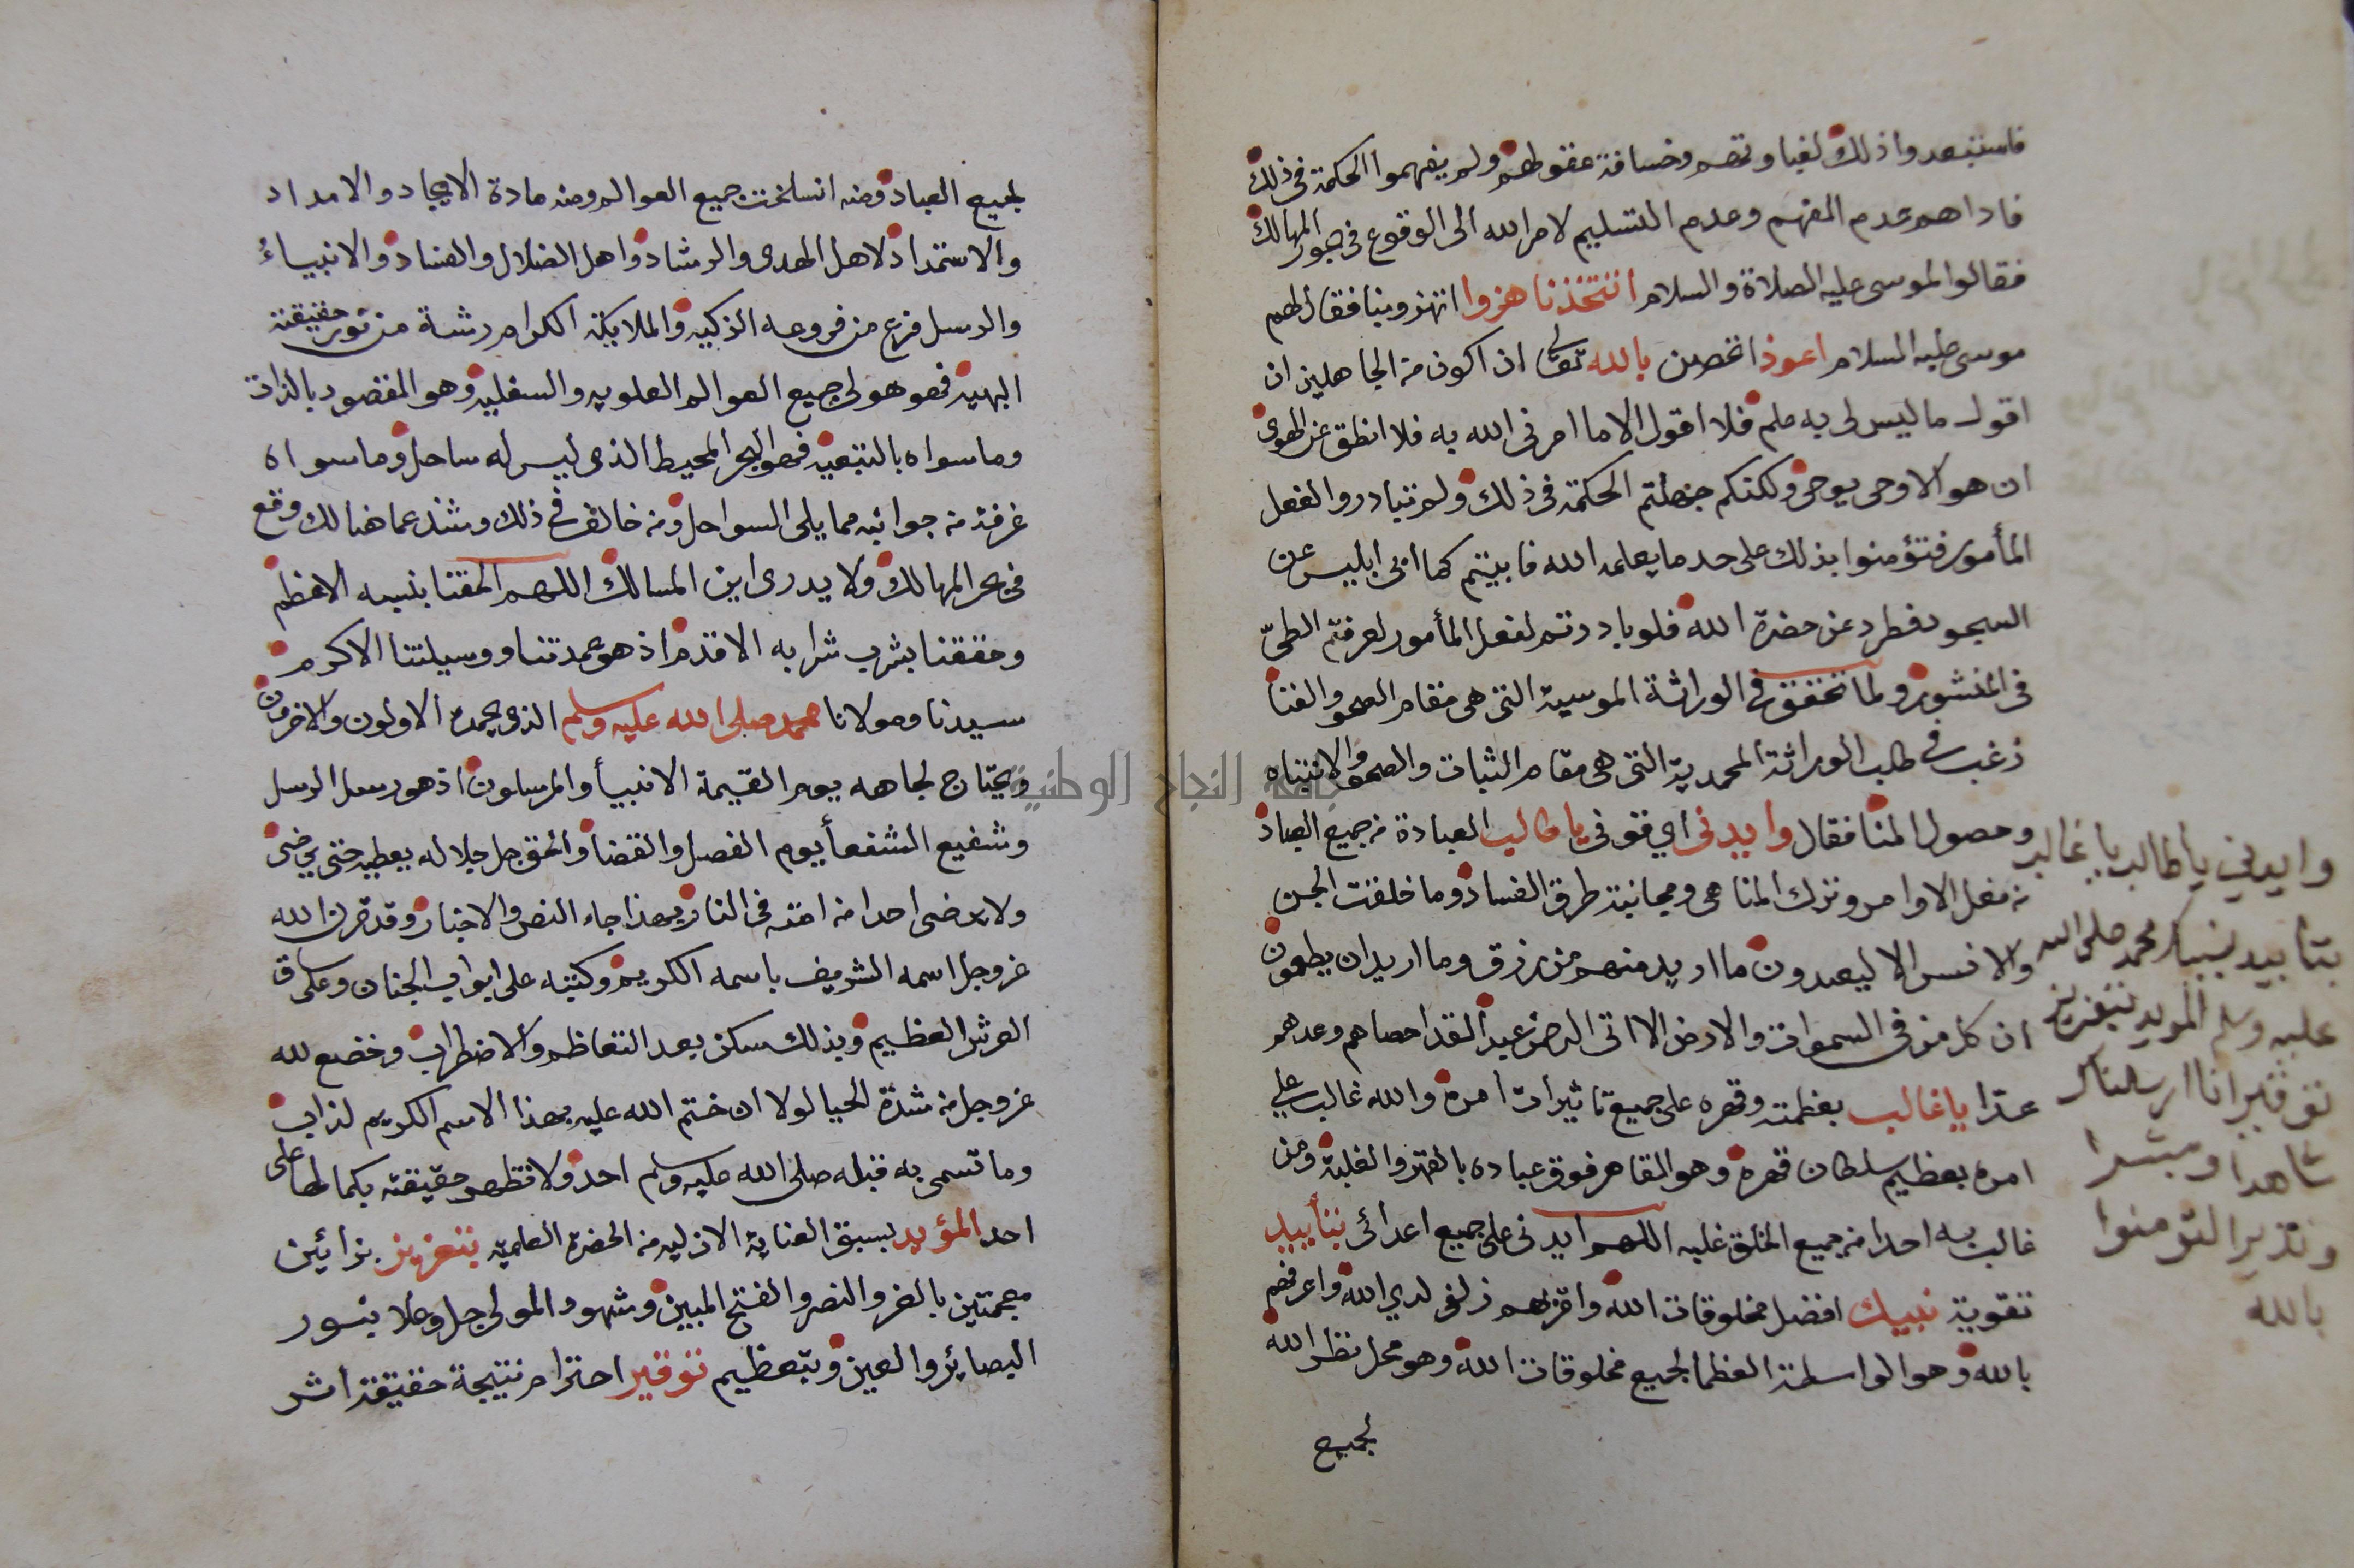 فاستبعدوا ذلك لغباوتهم وخسافة عقولهم ولم يفهموا الحكمة في ذلك
فاداهم عدم الفهم وعدم التسليم لامر الله الى الوقوع في بحور المهالك
فقالوا لموسى عليه الصلاة والسلام اتتخذنا هزوا اتهزو بنا فقال لهم
موسى عليه السلام اعوذ اتحصن بالله تعالى ان اكون من الجاهلين ان
اقول ما ليس لي به علم فلا اقول الا ما امرني الله به فلا انطق عن الهوى
ان هو الا وحي يوحى ولكنكم جهلتم الحكمة في ذلك ولم تبادروا لفعل
المأمور فتؤمنوا بذلك على حد ما يعلمه الله فابيتم كما ابى ابليس عن
السجود فطرد عن حضرة الله فلو بادرتم لفعل المأمور لعرفتم الطيّ
في المنشور ولما تحقق في الوراثة الموسية التي هي مقام الصحو والفنا
رغب في طلب الوراثة المحمدية التي هي مقام الثبات والصحو والانتباه
وحصول المنا فقال وايدني اي قوني يا طالب العبادة من جميع العباد
من فعل الاوامر وترك المناهي ومجانبة طرق الفساد وما خلقت الجن
والانس الا ليعبدون ما اريد منهم من رزق وما اريد ان يطعمون
ان كل من في السموات والارض الا اتى الرحمن عبدا لقد احصاهم وعدهم
عدّا يا غالب بعظمته وقهره على جميع تاثيرات امره والله غالب على
امره بعظيم سلطان قهره وهو القاهر فوق عباده بالقهر والغلبة ومن
غالب به احدا من جميع الخلق غلبه اللهم ايدني على جميع اعدائي بتأييد
تقوية نبيك افضل مخلوقات الله واقربهم زلفى لدي الله واعرفهم
بالله وهو الواسطة العظما لجميع مخلوقات الله وهو محل نظر الله
لجميع
وايدني يا طالب يا غالب
بتاييد نبيك محمد صلى الله
عليه وسلم المويد بتعزيز
توقير انا ارسلناك
شاهدا ومبشرا
ونذيرا لتومنوا
بالله
لجميع العباد ومنه انسلخت جميع العوالم ومنه مادة الايجاد والامداد
والاستمداد لاهل الهدى والرشاد واهل الضلال والفساد والانبياء
والرسل فرع من فروعه الزكيه والملايكة الكرام رشة من نور حقيقته
البهية فهو هولى جميع العوالم العلويه والسفليه وهو المقصود بالذات
وما سواه بالتبعية فهو البحر المحيط الذي ليس له ساحل وما سواه
غرفة من جوانبه مما يلي السواحل ومن خالف في ذلك وشذ عما هنالك وقع
في بحر المهالك ولا يدرى اين المسالك اللهم الحقنا بنسبه الاعظم
وحققنا بشرب شرابه الاقدم اذ هو عمدتنا ووسيلتنا الاكرم
سيدنا ومولانا محمد صلى الله عليه وسلم الذي يحمده الاولون والاخرون
ويحتاج لجاهه يوم القيمة الانبيأ والمرسلون اذ هو رسل الرسل
وشفيع الشفعأ يوم الفصل والقضا والحق جل جلاله يعطيه حتى يرضى
ولا يرضى احدا من امته في النار بهذا جاء النص والاخبار وقد قرن الله
عز وجل اسمه الشريف باسمه الكريم وكتبته على ابواب الجنان وعلى ساق
العرش العظيم وبذلك سكن بعد التعاظم والاضطراب وخضع لله
عز وجل من شدة الحيا لولا ان ختم الله عليه بهذا الاسم الكريم لذاب
وما تسمى به قبله صلى الله عليه وسلم احد ولا تظهر حقيقته بكمالها على
احد المؤيد بسبق العناية الازليه من الحضرة العلمية بتعزيز بزائين
معجمتين بالعز والنصر والفتح المبين وشهود المولى جل وعلا بنور
البصائر والعين وبتعظيم توقير احترام نتيجة حقيقة اشر
جامعة النجاح الوطنية